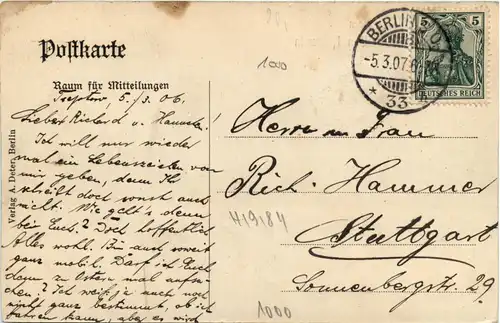 Postkarte
Raum für Mitteilungen
Treptow 5./3. 06.
Lieber Richard u. Hannche!
Ich will nur wieder
mal ein Lebenszeichen von
mir geben, denn Ihr
schreibt doch sonst auch
nicht. Wie geht's denn
bei Euch? Doch hoffentlich
Alles wohl. Bin auch soweit
ganz mobil. Darf ich Euch
denn zu Ostern mal aufsu-
chen? Ich weiß ja auch noch
nicht ganz bestimmt, ob ich
fahren kann, aber es wird
Verlag A. Deter, Berlin
1000
BERLIN
-5.3.07
* 33
5 5
DEUTSCHES REICH
Herrn u. Frau
Rich. Hammer
H19184
Stuttgart
Sonnenbergstr. 29
1000